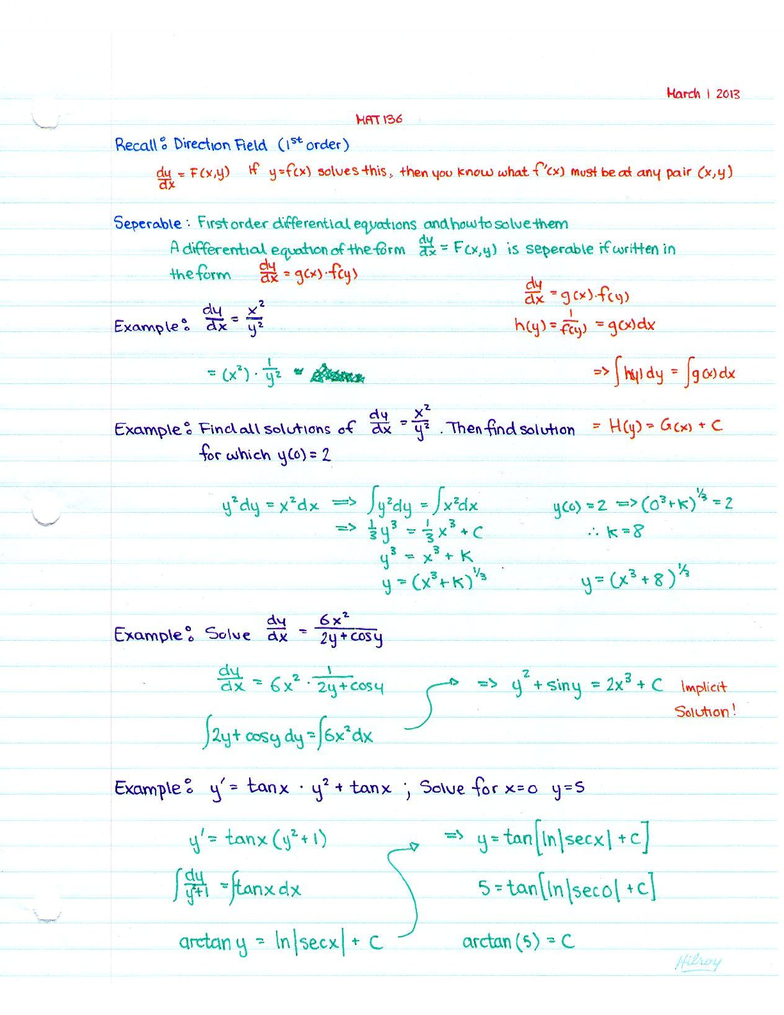 March 1 2013
MAT 136
Recall: Direction Field (1st order)
dy/dx = F(x,y) If y=f(x) solves this, then you know what f'(x) must be at any pair (x,y)
Seperable: First order differential equations and how to solve them
A differential equation of the form dy/dx = F(x,y) is seperable if written in
the form dy/dx = g(x)·f(y)
dy/dx = g(x)·f(y)
Example: dy/dx = x²/y²
h(y) = 1/f(y) = g(x)dx
= (x²) · 1/y² =
=> ∫h(y)dy = ∫g(x)dx
Example: Find all solutions of dy/dx = x²/y². Then find solution
= H(y) = G(x) + C
for which y(0) = 2
y²dy = x²dx => ∫y²dy = ∫x²dx
=> 1/3 y³ = 1/3 x³ + C
y³ = x³ + K
y = (x³+K)^1/3
y(0) = 2 => (0³+K)^1/3 = 2
∴ K = 8
y = (x³ + 8)^1/3
Example: Solve dy/dx = 6x²/2y + cosy
dy/dx = 6x² · 1/2y+cosy
∫2y + cosy dy = ∫6x²dx
=> y² + siny = 2x³ + C Implicit
Solution!
Example: y' = tanx · y² + tanx ; Solve for x=0 y=5
y' = tanx (y²+1)
∫dy/y²+1 = ∫tanx dx
arctan y = ln|secx| + C
=> y = tan[ln|secx| + C]
5 = tan[ln|sec0| + C]
arctan(5) = C
Hilroy